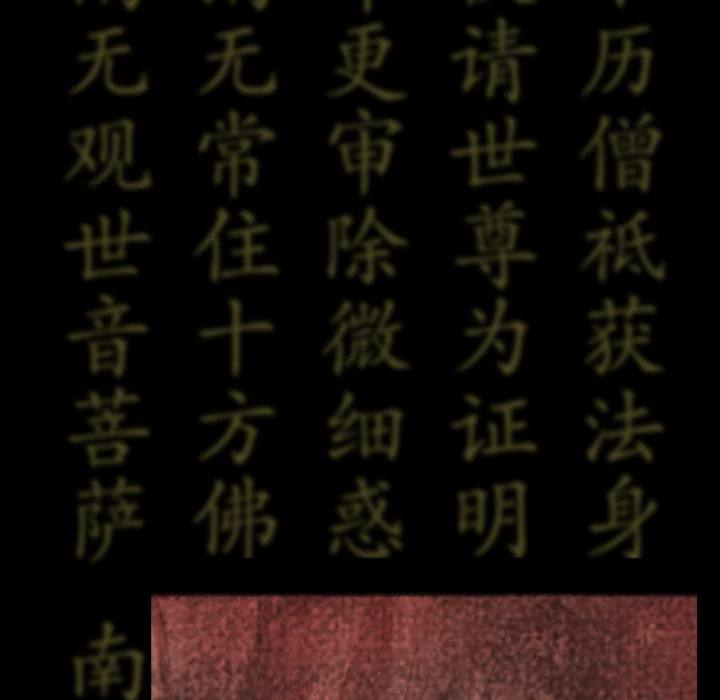 历僧祇获法身
请世尊为证明
更审除微细惑
无常住十方佛
无观世音菩萨
南